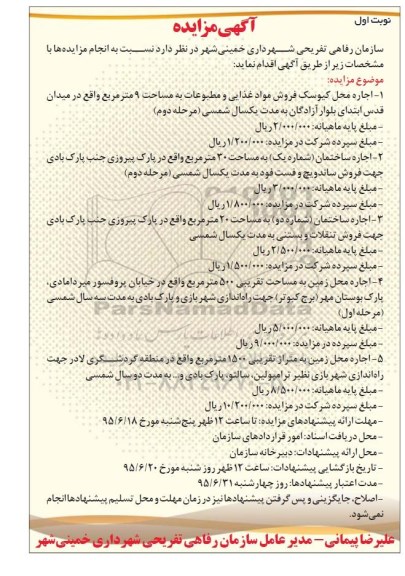 نوبت اول
آگهی مزایده
سازمان رفاهی تفریحی شهرداری خمینی‌شهر در نظر دارد نسبت به انجام مزایده‌ها با
مشخصات زیر از طریق آگهی اقدام نماید:
موضوع مزایده:
۱- اجاره محل کیوسک فروش مواد غذایی و مطبوعات به مساحت ۹ متر مربع واقع در میدان
قدس ابتدای بلوار آزادگان به مدت یکسال شمسی (مرحله دوم)
- مبلغ پایه ماهیانه: ۲/۰۰۰/۰۰۰ ریال
- مبلغ سپرده شرکت در مزایده: ۱/۲۰۰/۰۰۰ ریال
۲- اجاره ساختمان (شماره یک) به مساحت ۳۰ متر مربع واقع در پارک پیروزی جنب پارک بادی
جهت فروش ساندویچ و فست فود به مدت یکسال شمسی (مرحله دوم)
- مبلغ پایه ماهیانه: ۳/۰۰۰/۰۰۰ ریال
- مبلغ سپرده شرکت در مزایده: ۱/۸۰۰/۰۰۰ ریال
۳- اجاره ساختمان (شماره دو) به مساحت ۲۰ متر مربع واقع در پارک پیروزی جنب پارک بادی
جهت فروش تنقلات و بستنی به مدت یکسال شمسی
- مبلغ پایه ماهیانه: ۲/۵۰۰/۰۰۰ ریال
- مبلغ سپرده شرکت در مزایده: ۱/۵۰۰/۰۰۰ ریال
۴- اجاره محل زمین به مساحت تقریبی ۵۰۰ متر مربع واقع در خیابان پروفسور میردامادی،
پارک بوستان مهر (برج کبوتر) جهت راه‌اندازی شهر بازی و پارک بادی به مدت سه سال شمسی
(مرحله اول)
ParsNamadData
- مبلغ پایه ماهیانه: ۵/۰۰۰/۰۰۰ ریال
- مبلغ سپرده در مزایده: ۹/۰۰۰/۰۰۰ ریال
۵- اجاره محل زمین به متراژ تقریبی ۱۵۰۰ متر مربع واقع در منطقه گردشگری لادر جهت
راه‌اندازی شهر بازی نظیر ترامپولین، سالتو، پارک بادی و... به مدت دو سال شمسی
- مبلغ پایه ماهیانه: ۸/۵۰۰/۰۰۰ ریال
- مبلغ سپرده شرکت در مزایده: ۱۰/۲۰۰/۰۰۰ ریال
- مهلت ارائه پیشنهادهای مزایده: تا ساعت ۱۲ ظهر پنج‌شنبه مورخ ۹۵/۶/۱۸
- محل دریافت اسناد: امور قراردادهای سازمان
- محل ارائه پیشنهادات: دبیرخانه سازمان
- تاریخ بازگشایی پیشنهادات: ساعت ۱۲ ظهر روز شنبه مورخ ۹۵/۶/۲۰
- مدت اعتبار پیشنهادها: روز چهارشنبه ۹۵/۶/۳۱
- اصلاح، جایگزینی و پس گرفتن پیشنهادها نیز در زمان مهلت و محل تسلیم پیشنهادها انجام
نمی‌شود.
علیرضا پیمانی - مدیر عامل سازمان رفاهی تفریحی شهرداری خمینی‌شهر